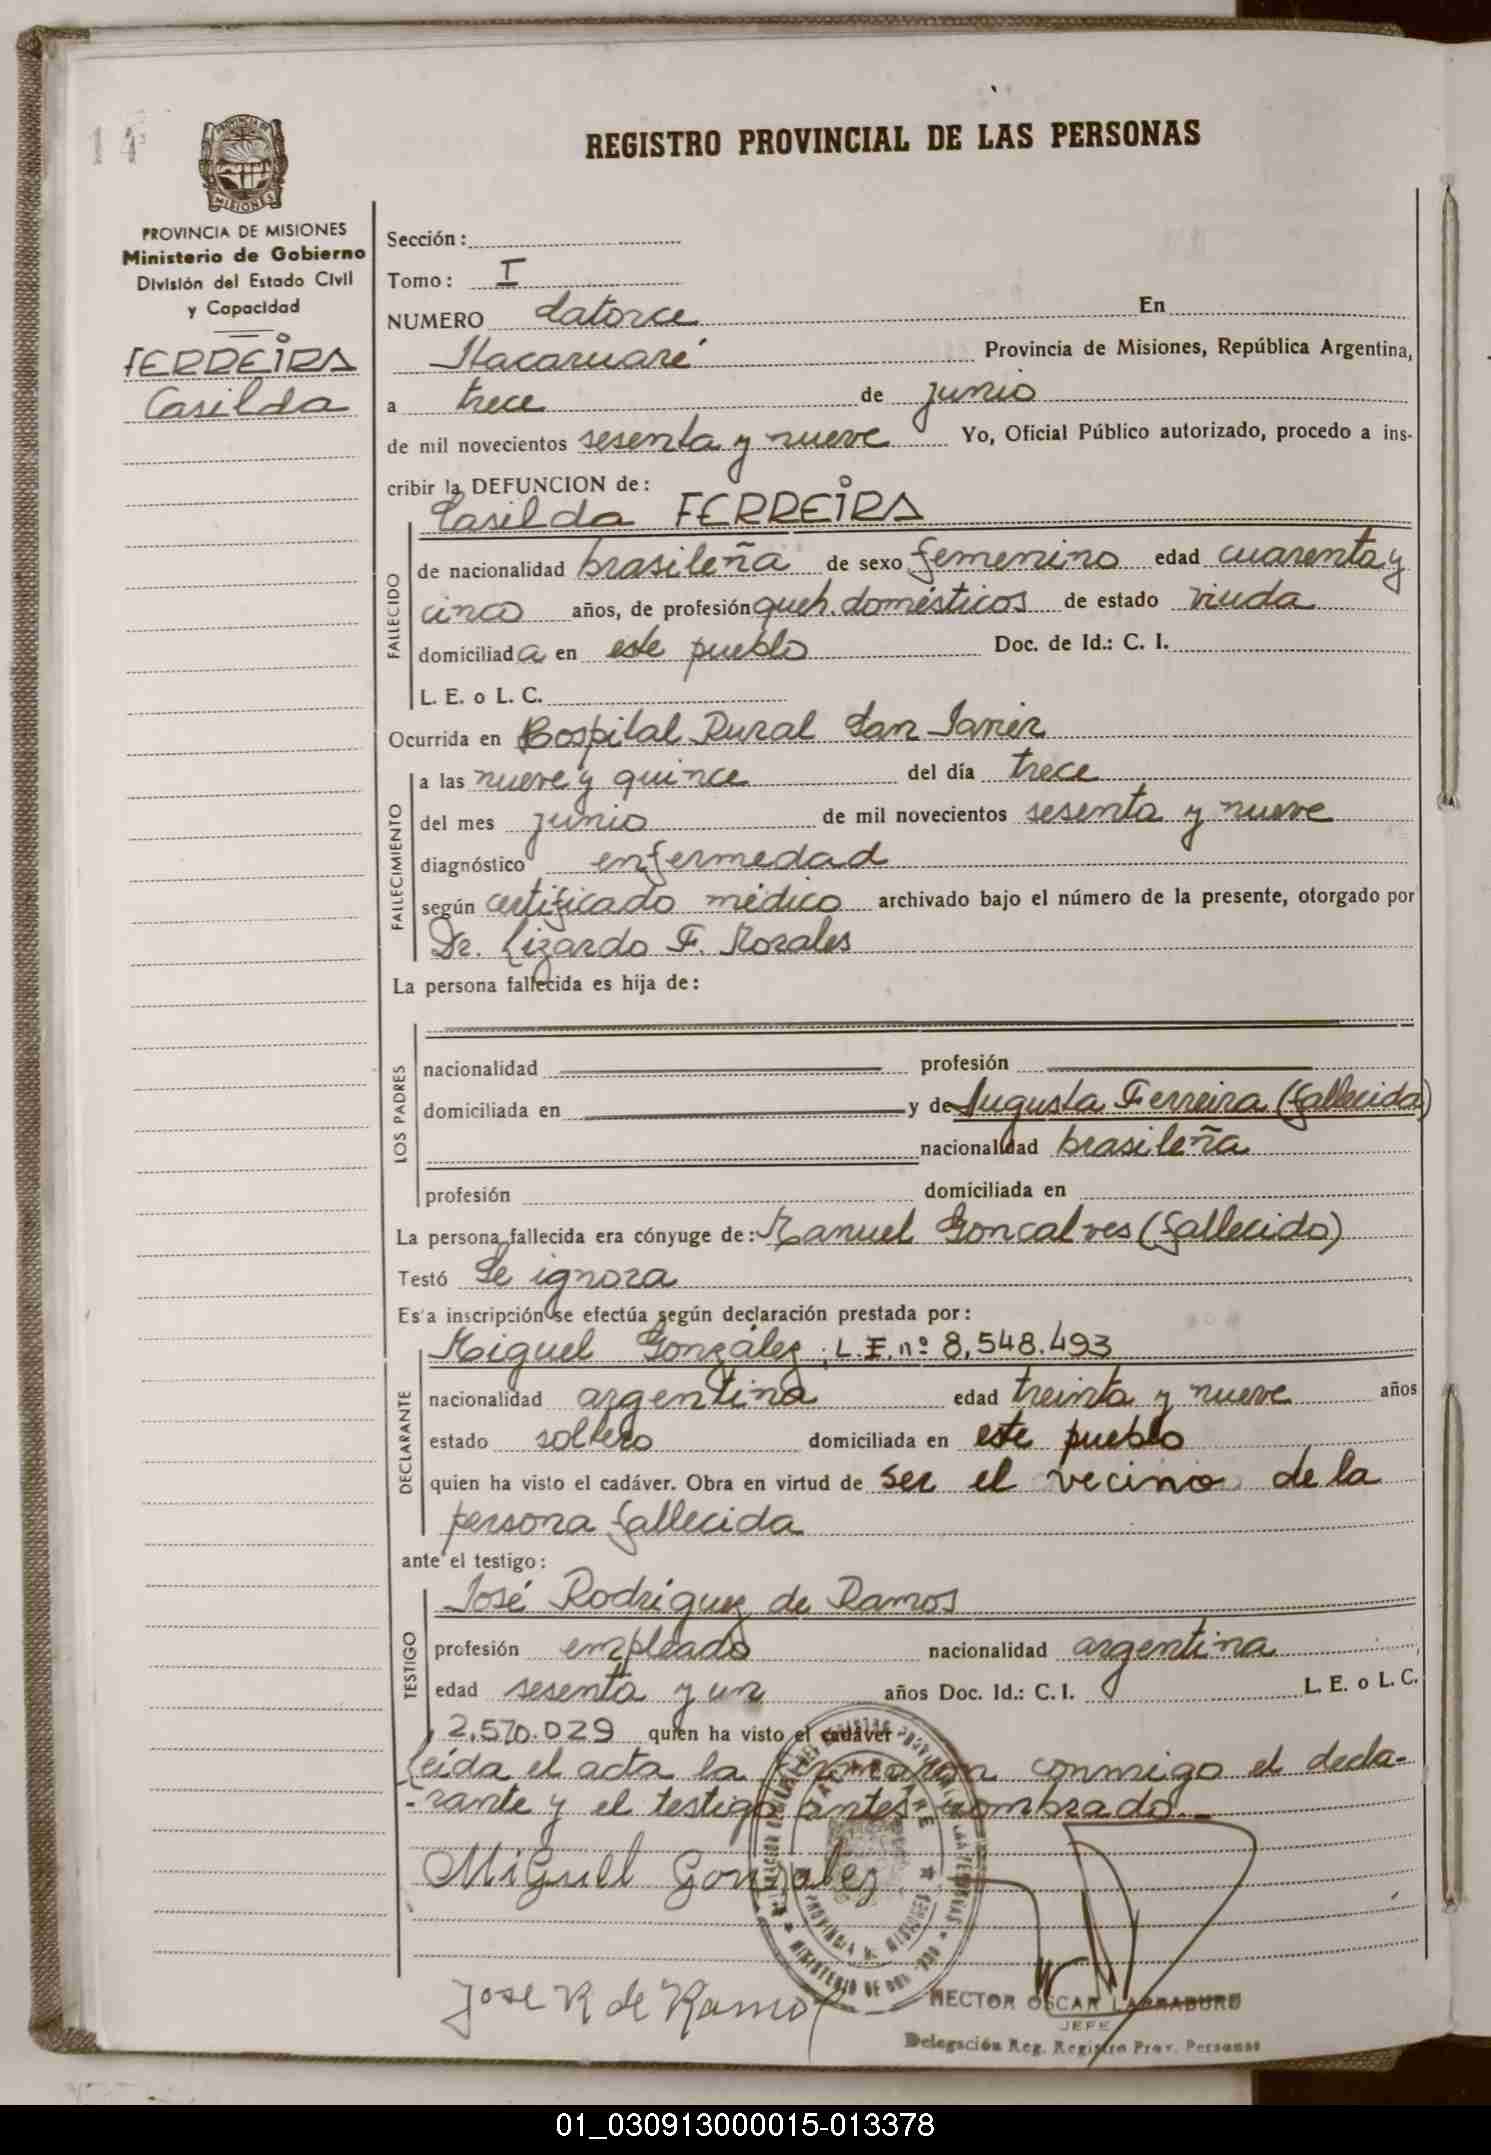 14
REGISTRO PROVINCIAL DE LAS PERSONAS
PROVINCIA DE MISIONES
Ministerio de Gobierno
División del Estado Civil
y Capacidad
FERREIRA
Casilda
Sección:
Tomo: I
NUMERO Catorce En
Itacaruaré Provincia de Misiones, República Argentina,
a trece de junio
de mil novecientos sesenta y nueve Yo, Oficial Público autorizado, procedo a ins-
cribir la DEFUNCION de:
Casilda FERREIRA
FALLECIDO
de nacionalidad brasileña de sexo femenino edad cuarenta y
cinco años, de profesión queh. domésticos de estado viuda
domiciliada en este pueblo Doc. de Id.: C. I.
L. E. o L. C.
Ocurrida en Hospital Rural San Javier
FALLECIMIENTO
a las nueve y quince del día trece
del mes junio de mil novecientos sesenta y nueve
diagnóstico enfermedad
según certificado médico archivado bajo el número de la presente, otorgado por
Dr. Lizardo F. Morales
La persona fallecida es hija de:
LOS PADRES
nacionalidad profesión
domiciliada en y de Augusta Ferreira (fallecida)
nacionalidad brasileña
profesión domiciliada en
La persona fallecida era cónyuge de: Manuel Goncalves (fallecido)
Testó Se ignora
Es'a inscripción se efectúa según declaración prestada por:
Miguel González, L.E. nº 8,548.493
DECLARANTE
nacionalidad argentina edad treinta y nueve años
estado soltero domiciliada en este pueblo
quien ha visto el cadáver. Obra en virtud de ser el vecino de la
persona fallecida
ante el testigo:
José Rodriguez de Ramos
TESTIGO
profesión empleado nacionalidad argentina
edad sesenta y un años Doc. Id.: C. I. L. E. o L. C.
2.570.029 quien ha visto el cadáver
Leida el acta la firmaron conmigo el decla-
-rante y el testigo antes nombrado.-
Miguel Gonzalez
PROVINCIA DE MISIONES
Jose R de Ramos
HECTOR OSCAR LARRABURU
JEFE
Delegación Reg. Registro Prov. Personas
01_030913000015-013378